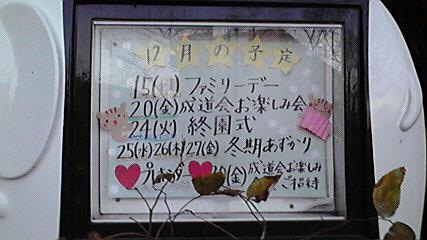 12月の予定
15(日)ファミリーデー
20(金)成道会お楽しみ会
24(火)終園式
25(水)26(木)27(金)冬期あずかり
20(金)成道会お楽しみ
ご招待